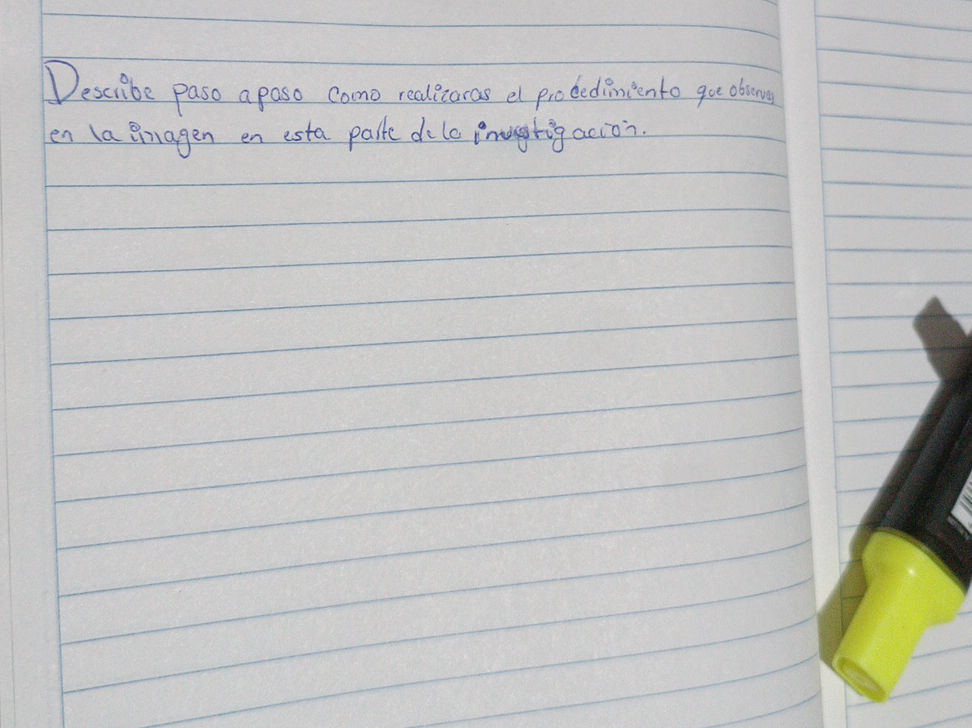 Describe paso apaso como realizaras el prodedimiento que observas
en la imagen en esta parte de la investigación.